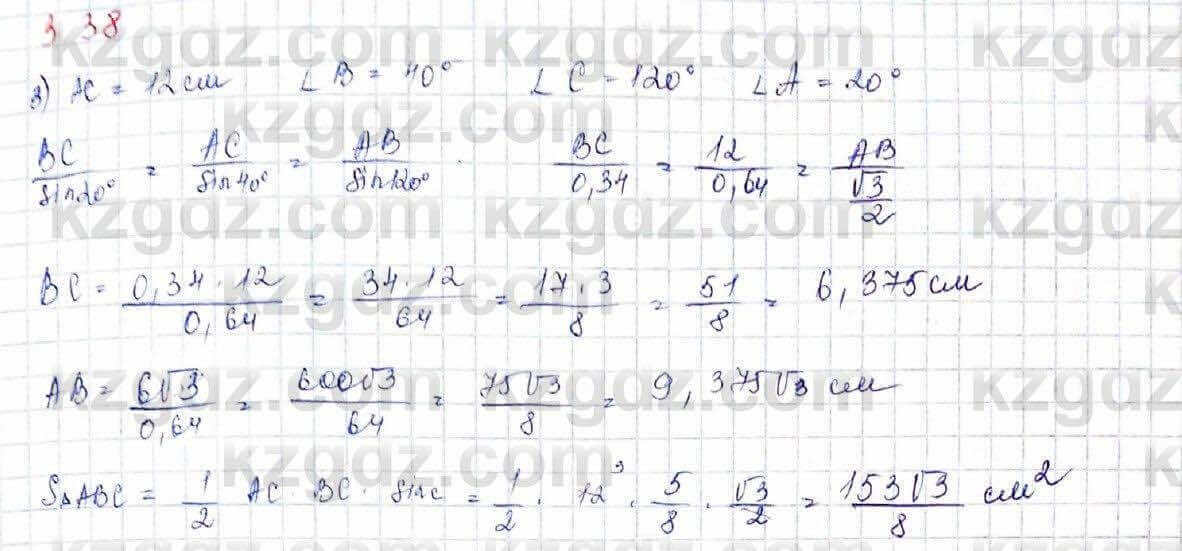 3.38
3) AC = 12 см ∠B = 40° ∠C = 120° ∠A = 20°
BC/sin20° = AC/sin40° = AB/sin120° . BC/0,34 = 12/0,64 = AB/(√3/2)
BC = 0,34·12/0,64 = 34·12/64 = 17·3/8 = 51/8 = 6,375 см
AB = 6√3/0,64 = 600√3/64 = 75√3/8 = 9,375√3 см
S△ABC = 1/2 AC · BC · sin c = 1/2 · 12 ³ · 5/8 · √3/2 = 153√3/8 см²
kzgdz.com